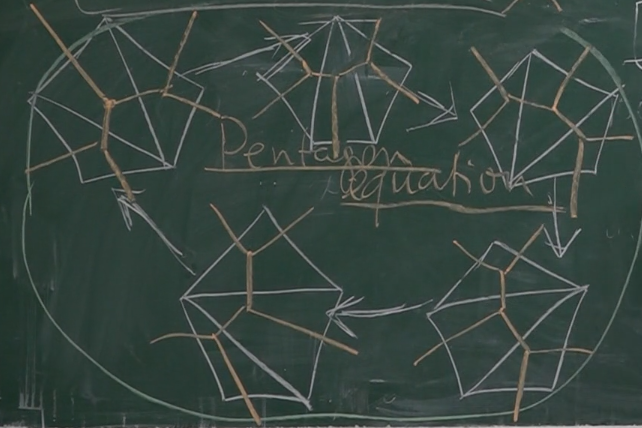 Pentagon
equation